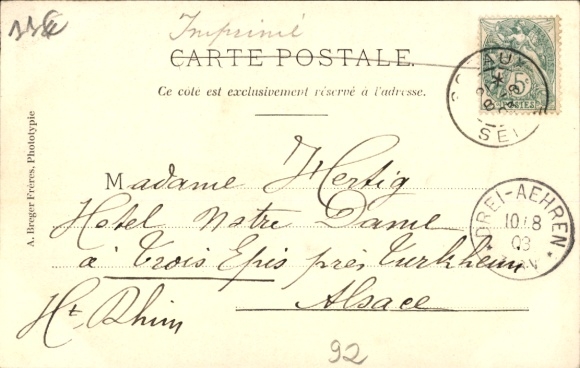 Imprimé
CARTE POSTALE.
Ce côté est exclusivement réservé à l'adresse.
5c
POSTES
SCEAUX
SEI
DREI-AEHREN
10/8
03
A. Breger Frères. Phototypie
Madame Hertig
Hotel Notre Dame
à Trois Epis près Turkheim
Alsace
Ht. Rhin
92